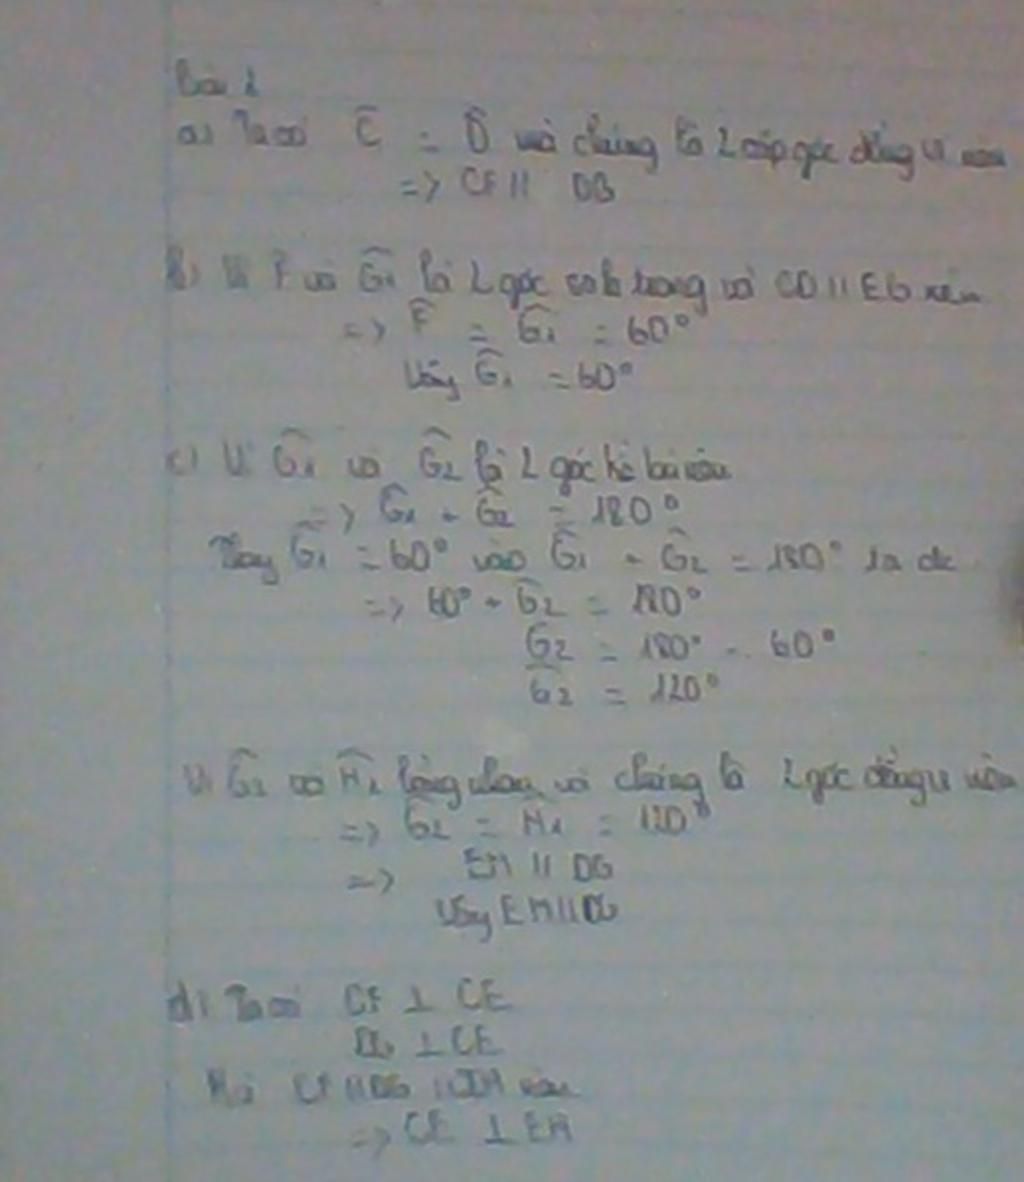 Bài 1
a) Ta có Ĉ = D̂ mà chúng là 2 cặp góc đồng vị nên
=> CF // DG
b) Vì F̂ và Ĝ1 là 2 góc so le trong và CD // EG nên
=> F̂ = Ĝ1 = 60°
Vậy Ĝ1 = 60°
c) Vì Ĝ1 và Ĝ2 là 2 góc kề bù nên
=> Ĝ1 + Ĝ2 = 180°
Thay Ĝ1 = 60° vào Ĝ1 + Ĝ2 = 180° ta đc
=> 60° + Ĝ2 = 180°
Ĝ2 = 180° - 60°
Ĝ2 = 120°
Ĝ2 và Ĥ1 bằng nhau và chúng là 2 góc đồng vị nên
=> Ĝ2 = Ĥ1 = 120°
=> EH // DG
Vậy EH // DG
d) Ta có CF ⊥ CE
DG ⊥ CE
Mà CF // DG // EH nên
=> CE ⊥ EH